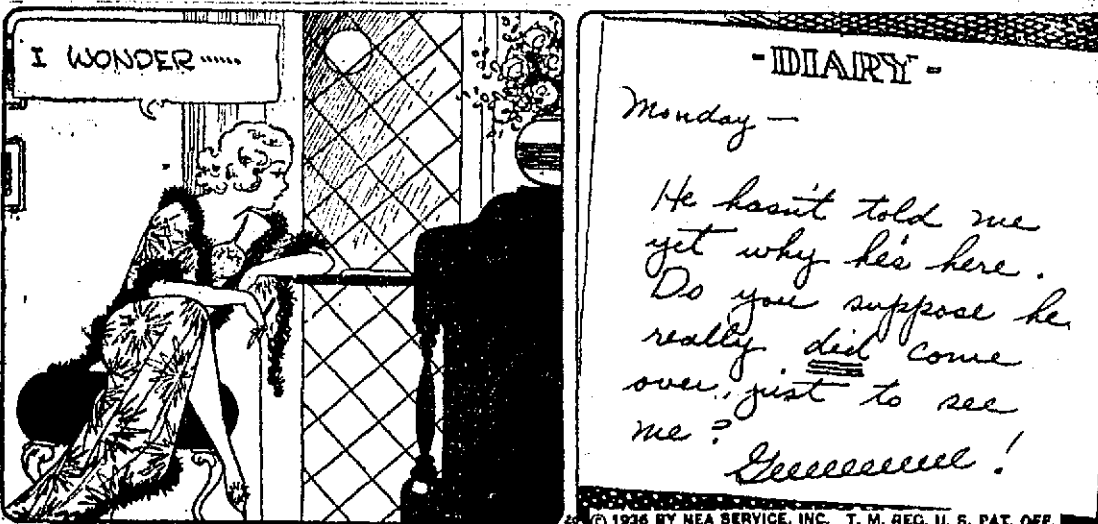 I WONDER......
-DIARY-
Monday —
He hasn't told me
yet why he's here.
Do you suppose he
really did come
over, just to see
me?
Geeeeeeeee!
© 1936 BY NEA SERVICE, INC. T. M. REG. U. S. PAT. OFF.